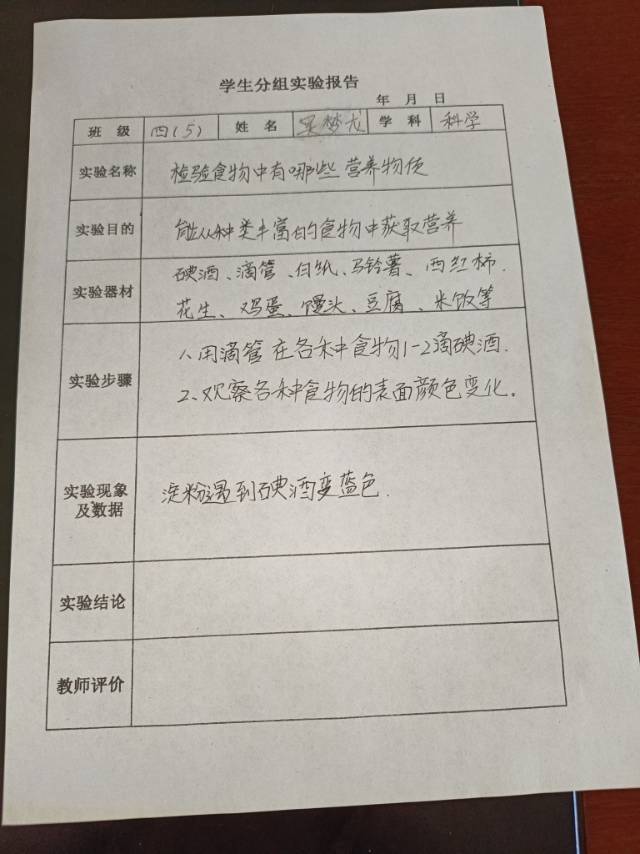 学生分组实验报告
年 月 日
班 级 四(5) 姓 名 吴梦龙 学 科 科学
实验名称 检验食物中有哪些营养物质
实验目的 能从种类丰富的食物中获取营养
实验器材 碘酒、滴管、白纸、马铃薯、西红柿.
花生、鸡蛋、馒头、豆腐、米饭等
实验步骤 1、用滴管在各种食物1-2滴碘酒.
2、观察各种食物的表面颜色变化.
实验现象
及数据 淀粉遇到碘酒变蓝色.
实验结论
教师评价